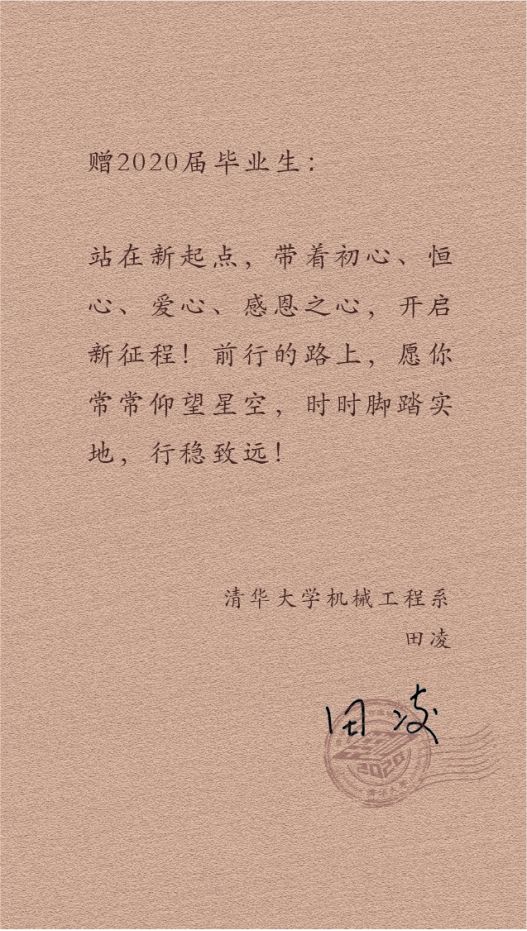 赠2020届毕业生：
站在新起点，带着初心、恒
心、爱心、感恩之心，开启
新征程！前行的路上，愿你
常常仰望星空，时时脚踏实
地，行稳致远！
清华大学机械工程系
田凌
田凌
2020